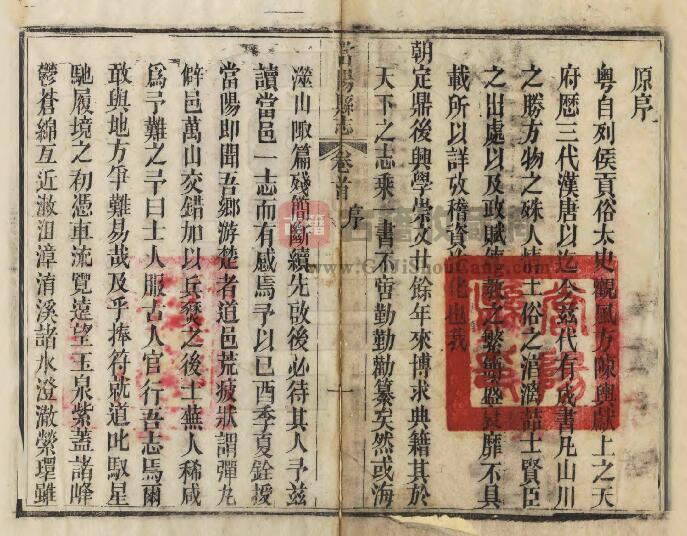 原序
粵自列侯貢俗太史觀風方陳輿獻上之天
府歷三代漢唐以迄今茲代有成書凡山川
之勝方物之殊人情土俗之淯漓喆士賢臣
之出處以及政賦使教之繁簡盛衰靡不具
載所以詳攷稽資治化也我
朝定鼎後興學崇文廿餘年來博求典籍其於
天下之志乘書不啻勤勤勤纂矣然或海
當陽縣志 卷首 序 一
澨山陬篇殘簡斷續先啟後必待其人予茲
讀當邑一志而有感焉予以己酉季夏銓授
當陽即聞吾鄉游楚者道邑荒疲狀謂彈丸
僻邑萬山交錯加以兵燹之後土蕪人稀咸
爲予難之予曰士人服古人官行吾志焉爾
敢與地方爭難易哉及乎捧符就道叱馭星
馳履境之初憑車流覽遠望玉泉紫蓋諸峰
鬱蒼綿亙近漱沮漳淯溪諸水澄澈縈環雖
古籍收藏網
www.GuJiShouCang.com